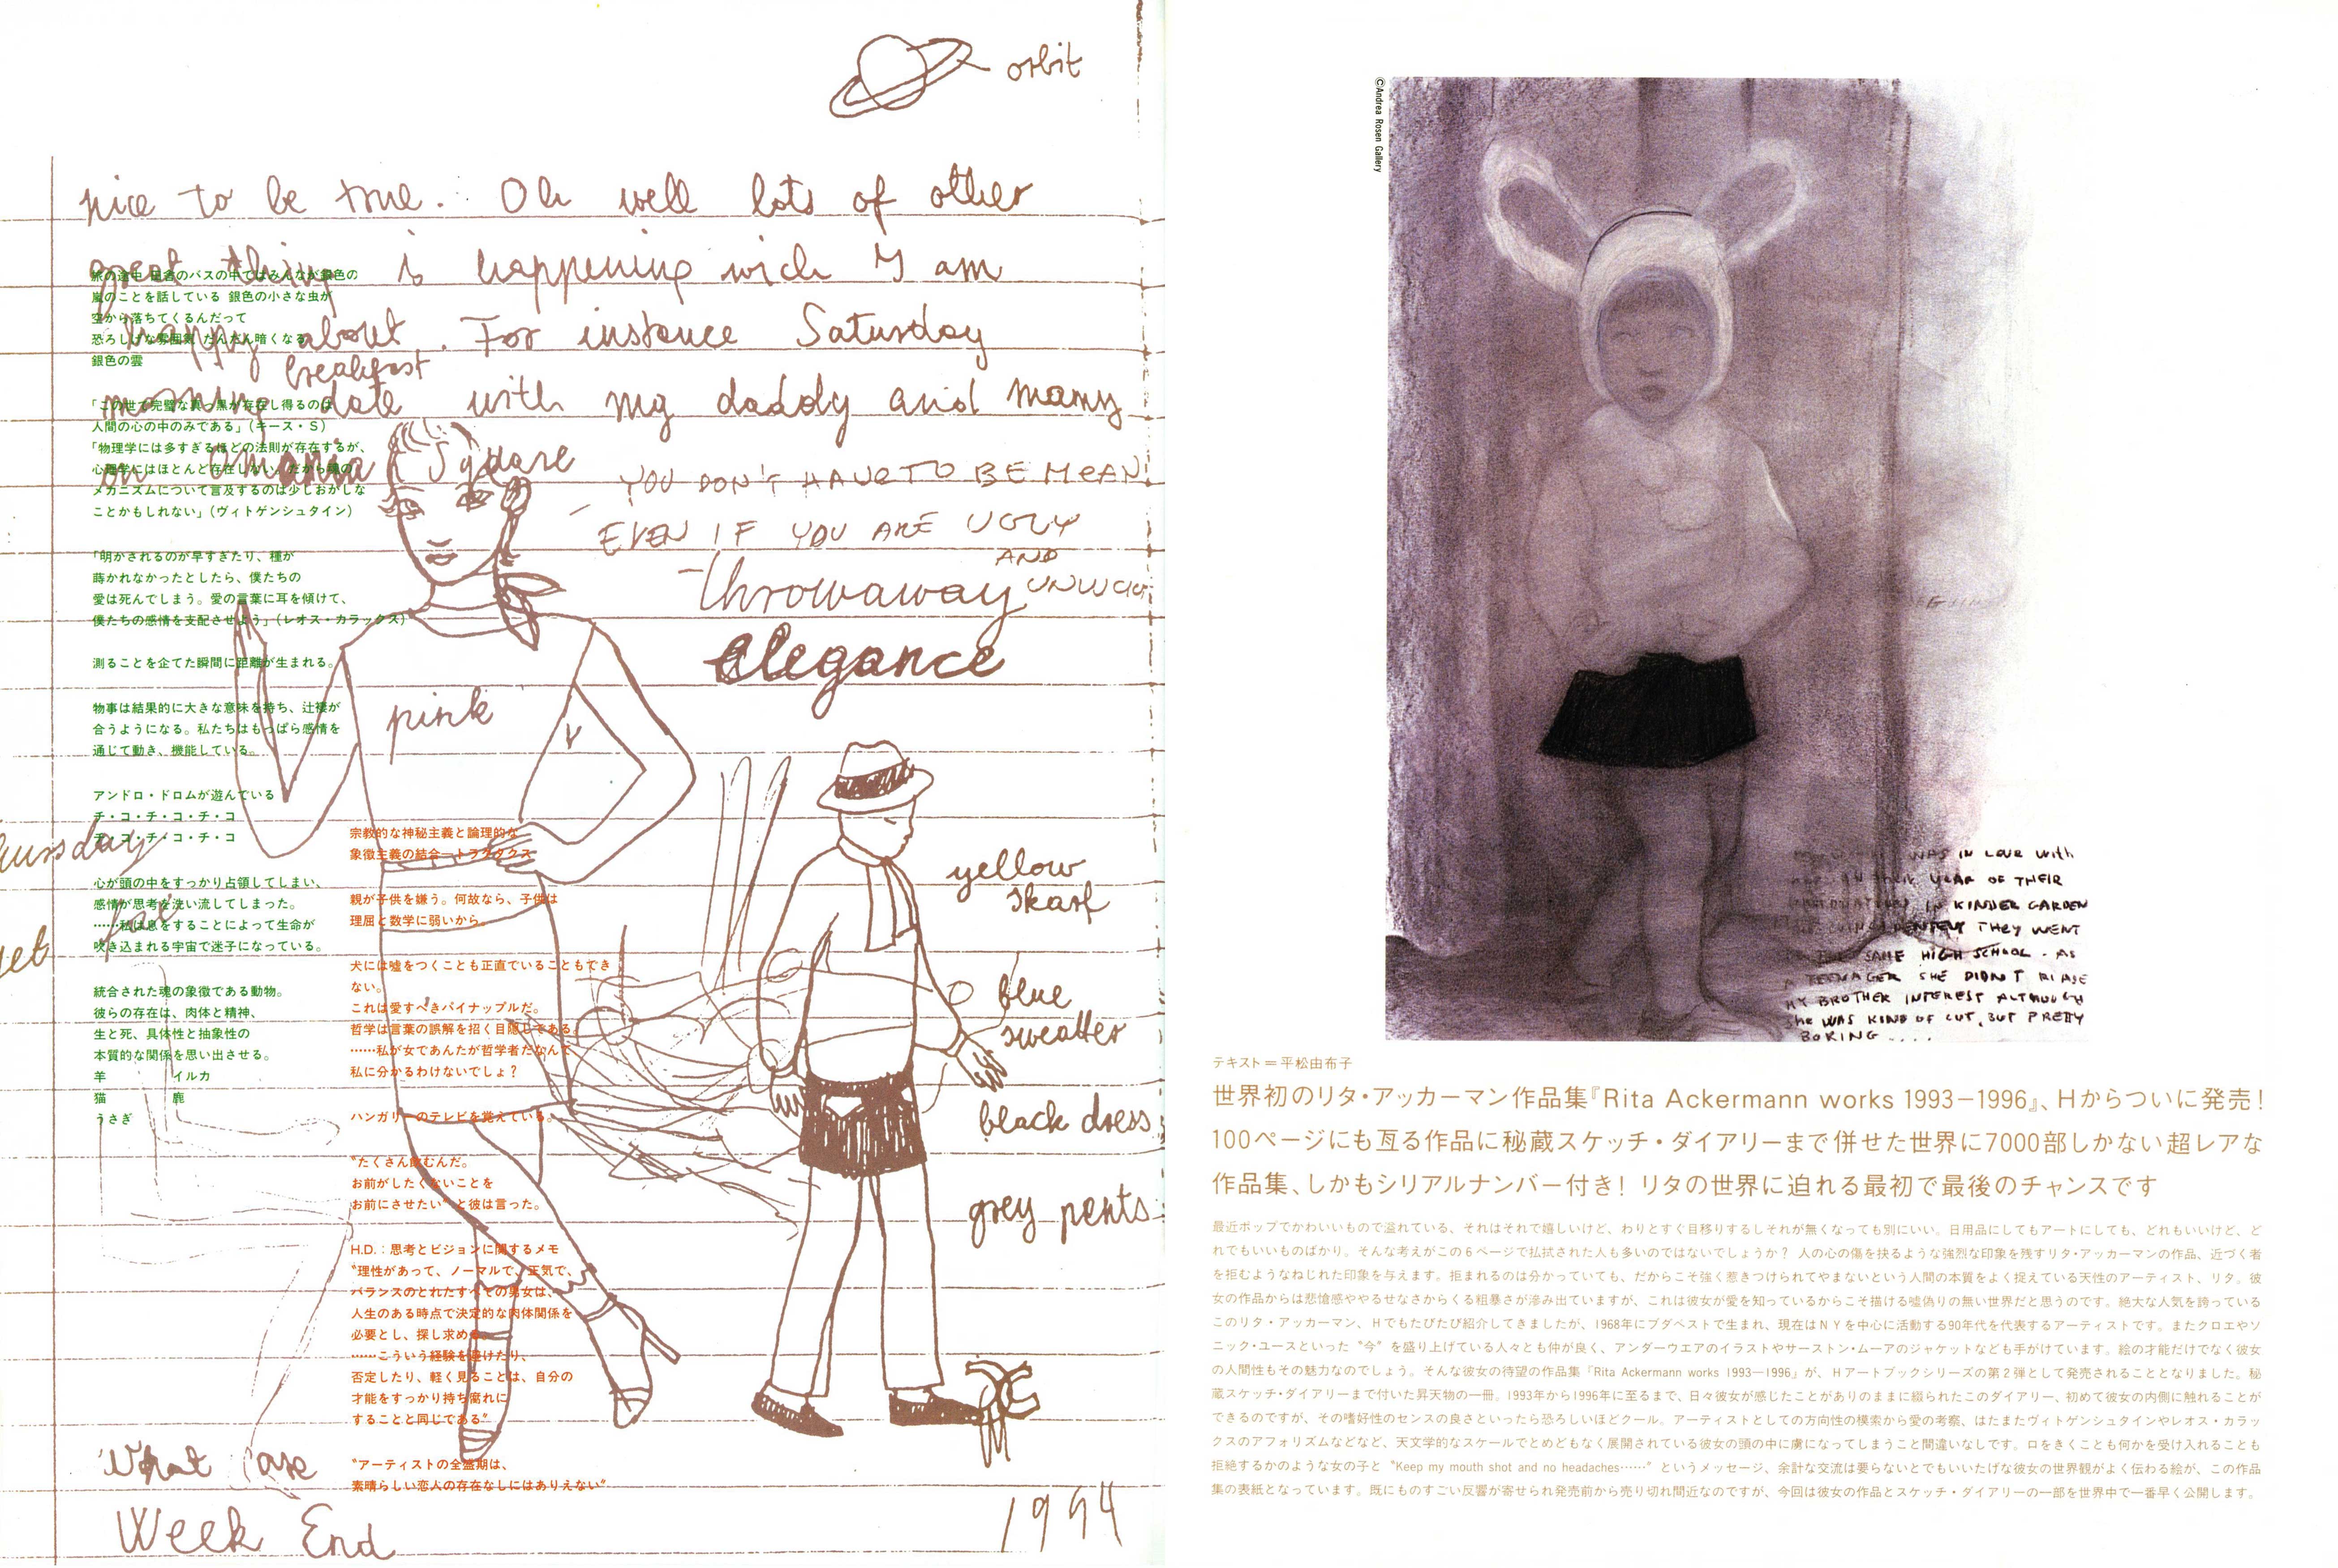 orbit
nice to be true. Oh well lots of other
great thing is happening wich I am
happy about. For instance Saturday
breakfast
morning date with my daddy and mamy
on Square
YOU DON'T HAVE TO BE MEAN
EVEN IF YOU ARE UGLY
AND
throwaway
elegance
pink
yellow
skarf
blue
sweatter
black dress
grey pents
What are
Week End
1994
旅の途中 田舎のバスの中ではみんなが銀色の
嵐のことを話している 銀色の小さな虫が
空から落ちてくるんだって
恐ろしげな雰囲気 だんだん暗くなる
銀色の雲
「この世で完璧な真っ黒が存在し得るのは
人間の心の中のみである」(キース・S)
「物理学には多すぎるほどの法則が存在するが、
心理学にはほとんど存在しない。だから魂の
メカニズムについて言及するのは少しおかしな
ことかもしれない」(ヴィトゲンシュタイン)
「明かされるのが早すぎたり、種が
蒔かれなかったとしたら、僕たちの
愛は死んでしまう。愛の言葉に耳を傾けて、
僕たちの感情を支配させよう」(レオス・カラックス)
測ることを企てた瞬間に距離が生まれる。
物事は結果的に大きな意味を持ち、辻褄が
合うようになる。私たちはもっぱら感情を
通じて動き、機能している。
アンドロ・ドロムが遊んでいる
チ・コ・チ・コ・チ・コ
チ・コ・チ・コ・チ・コ
心が頭の中をすっかり占領してしまい、
感情が思考を洗い流してしまった。
……私は息をすることによって生命が
吹き込まれる宇宙で迷子になっている。
統合された魂の象徴である動物。
彼らの存在は、肉体と精神、
生と死、具体性と抽象性の
本質的な関係を思い出させる。
羊 イルカ
猫 鹿
うさぎ
宗教的な神秘主義と論理的な
象徴主義の結合―トラクタクス
親が子供を嫌う。何故なら、子供は
理屈と数学に弱いから。
犬には嘘をつくことも正直でいることもでき
ない。
これは愛すべきパイナップルだ。
哲学は言葉の誤解を招く目隠しである。
……私が女であんたが哲学者だなんて
私に分かるわけないでしょ？
ハンガリーのテレビを覚えている。
“たくさん飲むんだ。
お前がしたくないことを
お前にさせたい”と彼は言った。
H.D.：思考とビジョンに関するメモ
“理性があって、ノーマルで、正気で、
バランスのとれたすべての男女は、
人生のある時点で決定的な肉体関係を
必要とし、探し求める
……こういう経験を避けたり、
否定したり、軽く見ることは、自分の
才能をすっかり持ち腐れに
することと同じである”
“アーティストの全盛期は、
素晴らしい恋人の存在なしにはありえない”
©Andrea Rosen Gallery
WAS IN LOVE with
YEAR OF THEIR
IN KINDER GARDEN
THEY WENT
SAME HIGH SCHOOL. AS
TEENAGER SHE DIDNT
MY BROTHER INTEREST ALTHOUGH
She WAS KIND OF CUT, BUT PRETTY
BORING ....
テキスト＝平松由布子
世界初のリタ・アッカーマン作品集『Rita Ackermann works 1993－1996』、Hからついに発売！
100ページにも亙る作品に秘蔵スケッチ・ダイアリーまで併せた世界に7000部しかない超レアな
作品集、しかもシリアルナンバー付き！ リタの世界に迫れる最初で最後のチャンスです
最近ポップでかわいいもので溢れている、それはそれで嬉しいけど、わりとすぐ目移りするしそれが無くなっても別にいい。日用品にしてもアートにしても、どれもいいけど、ど
れでもいいものばかり。そんな考えがこの6ページで払拭された人も多いのではないでしょうか？ 人の心の傷を抉るような強烈な印象を残すリタ・アッカーマンの作品、近づく者
を拒むようなねじれた印象を与えます。拒まれるのは分かっていても、だからこそ強く惹きつけられてやまないという人間の本質をよく捉えている天性のアーティスト、リタ。彼
女の作品からは悲愴感ややるせなさからくる粗暴さが滲み出ていますが、これは彼女が愛を知っているからこそ描ける嘘偽りの無い世界だと思うのです。絶大な人気を誇っている
このリタ・アッカーマン、Hでもたびたび紹介してきましたが、1968年にブダペストで生まれ、現在はNYを中心に活動する90年代を代表するアーティストです。またクロエやソ
ニック・ユースといった“今”を盛り上げている人々とも仲が良く、アンダーウエアのイラストやサーストン・ムーアのジャケットなども手がけています。絵の才能だけでなく彼女
の人間性もその魅力なのでしょう。そんな彼女の待望の作品集『Rita Ackermann works 1993―1996』が、Hアートブックシリーズの第2弾として発売されることとなりました。秘
蔵スケッチ・ダイアリーまで付いた昇天物の一冊。1993年から1996年に至るまで、日々彼女が感じたことがありのままに綴られたこのダイアリー、初めて彼女の内側に触れることが
できるのですが、その嗜好性のセンスの良さといったら恐ろしいほどクール。アーティストとしての方向性の模索から愛の考察、はたまたヴィトゲンシュタインやレオス・カラッ
クスのアフォリズムなどなど、天文学的なスケールでとめどもなく展開されている彼女の頭の中に虜になってしまうこと間違いなしです。口をきくことも何かを受け入れることも
拒絶するかのような女の子と“Keep my mouth shot and no headaches……”というメッセージ、余計な交流は要らないとでもいいたげな彼女の世界観がよく伝わる絵が、この作品
集の表紙となっています。既にものすごい反響が寄せられ発売前から売り切れ間近なのですが、今回は彼女の作品とスケッチ・ダイアリーの一部を世界中で一番早く公開します。